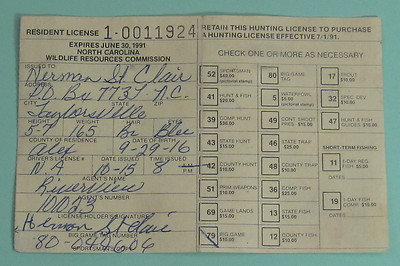 RESIDENT LICENSE 1-0011924
EXPIRES JUNE 30, 1991
NORTH CAROLINA
WILDLIFE RESOURCES COMMISSION
ISSUED TO
Herman St. Clair
ADDRESS
P.O. Box 7737 N.C.
CITY STATE ZIP
Taylorsville
HEIGHT WEIGHT HAIR EYES
5-7 165 Br Blue
COUNTY OF RESIDENCE DATE OF BIRTH
Alex 9-29-16
DRIVER'S LICENSE # DATE ISSUED TIME ISSUED
N A 10-15 8 A.M. P.M.
AGENT'S NAME
Riverview
AGENT'S NUMBER
LICENSE HOLDER'S SIGNATURE
Herman St Clair
BIG GAME TAG NUMBER
80-040606
RETAIN THIS HUNTING LICENSE TO PURCHASE
A HUNTING LICENSE EFFECTIVE 7/1/91.
CHECK ONE OR MORE AS NECESSARY
52 SPORTSMAN
80 BIG GAME TAG
17 TROUT $10.00
41 HUNT & FISH $20.00
5 WATERFOWL $5.00
32 SPEC. DEV.
39 COMP HUNT
49 CONT. SHOOT PRES. $15.00
47 HUNT & FISH GUIDES
43 STATE HUNT
46 STATE TRAP
SHORT-TERM FISHING
42 COUNTY HUNT
48 COUNTY TRAP $10.00
11 1-DAY RES. FISH $5.00
51 PRIM WEAPONS $10.00
36 COMP FISH
69 GAME LANDS $15.00
13 STATE FISH $15.00
19 1-DAY COMP FISH $10.00
79 BIG GAME $10.00
12 CO FISH $10.00